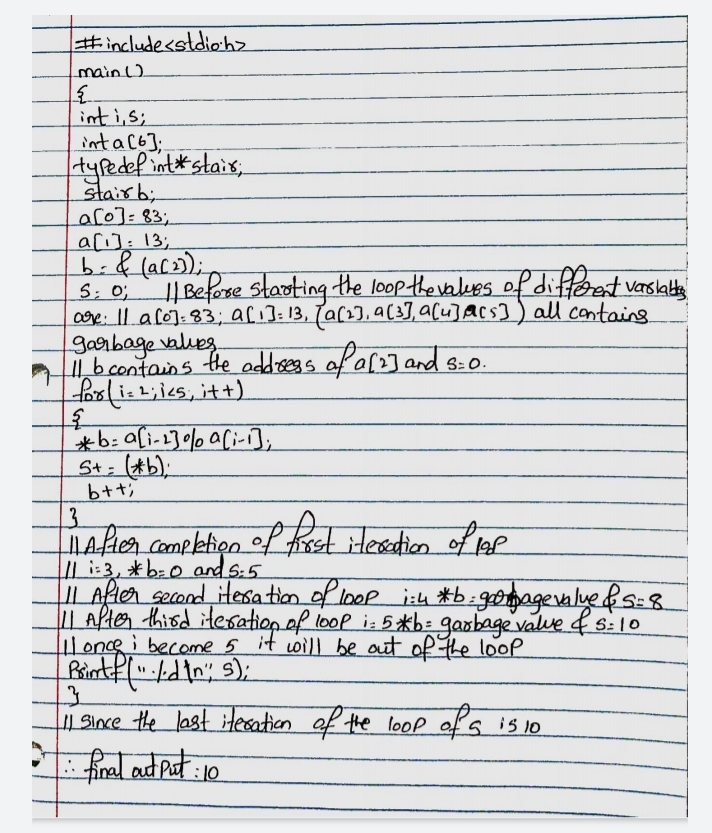 #include<stdio.h>
main()
{
int i,s;
int a[6];
typedef int* stair;
stair b;
a[0]= 83;
a[1]= 13;
b= & (a[2]);
s= 0; // Before starting the loop the values of different variables
are: // a[0]=83; a[1]=13, [a[2], a[3], a[4] a[5] ) all contains
garbage values
// b contains the address of a[2] and s=0.
for(i=2;i<5, i++)
{
*b= a[i-2]%a[i-1];
s+= (*b);
b++;
}
// After completion of first iteration of loop
// i=3, *b=0 and s=5
// After second iteration of loop i=4 *b=garbage value & s=8
// After third iteration of loop i=5 *b= garbage value & s=10
// once i become 5 it will be out of the loop
Printf("%d\n", s);
}
// Since the last iteration of the loop of s is 10
∴ final output : 10